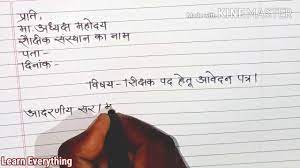 Made with KINEMASTER
प्रति,
मा. अध्यक्ष महोदय
शैक्षिक संस्थान का नाम
पता-
दिनांक-
विषय - शिक्षक पद हेतू आवेदन पत्र।
आदरणीय सर।
Learn Everything